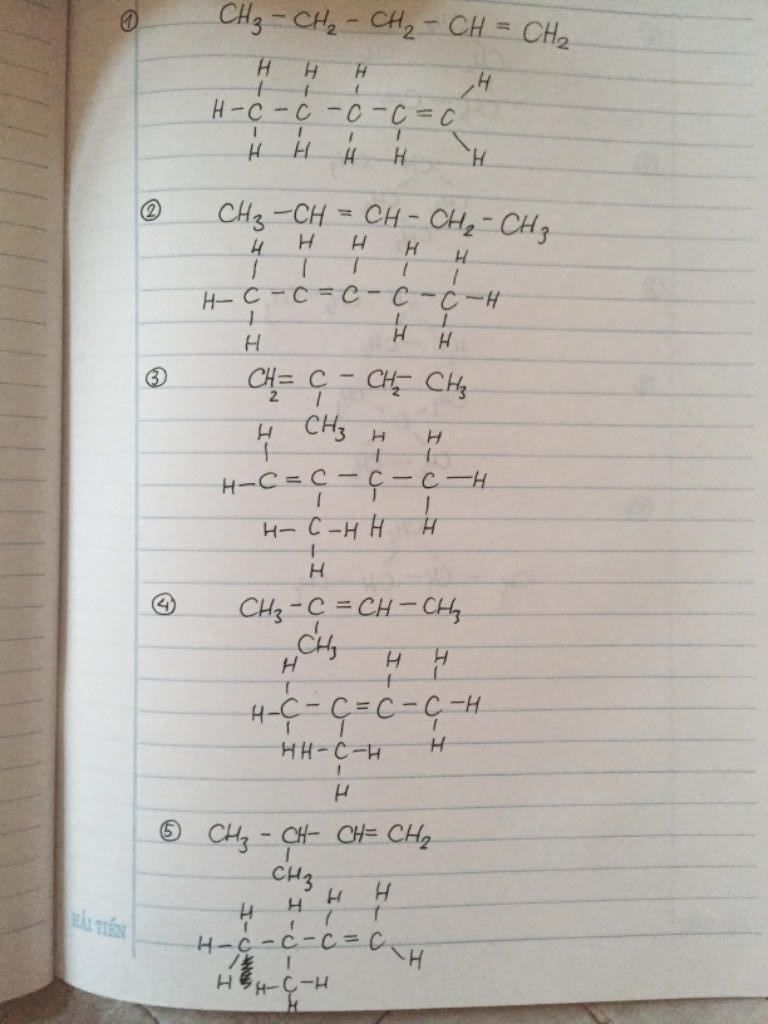 ① CH3 - CH2 - CH2 - CH = CH2
H H H H
H - C - C - C - C = C
H H H H H
② CH3 - CH = CH - CH2 - CH3
H H H H H
H - C - C = C - C - C - H
H H H
③ CH2 = C - CH2 - CH3
CH3
H H H
H - C = C - C - C - H
H - C - H H H
H
④ CH3 - C = CH - CH3
CH3
H H H
H - C - C = C - C - H
H H - C - H H
H
⑤ CH3 - CH - CH = CH2
CH3
H H H H
H - C - C - C = C
H H - C - H H
H
HẢI TIẾN